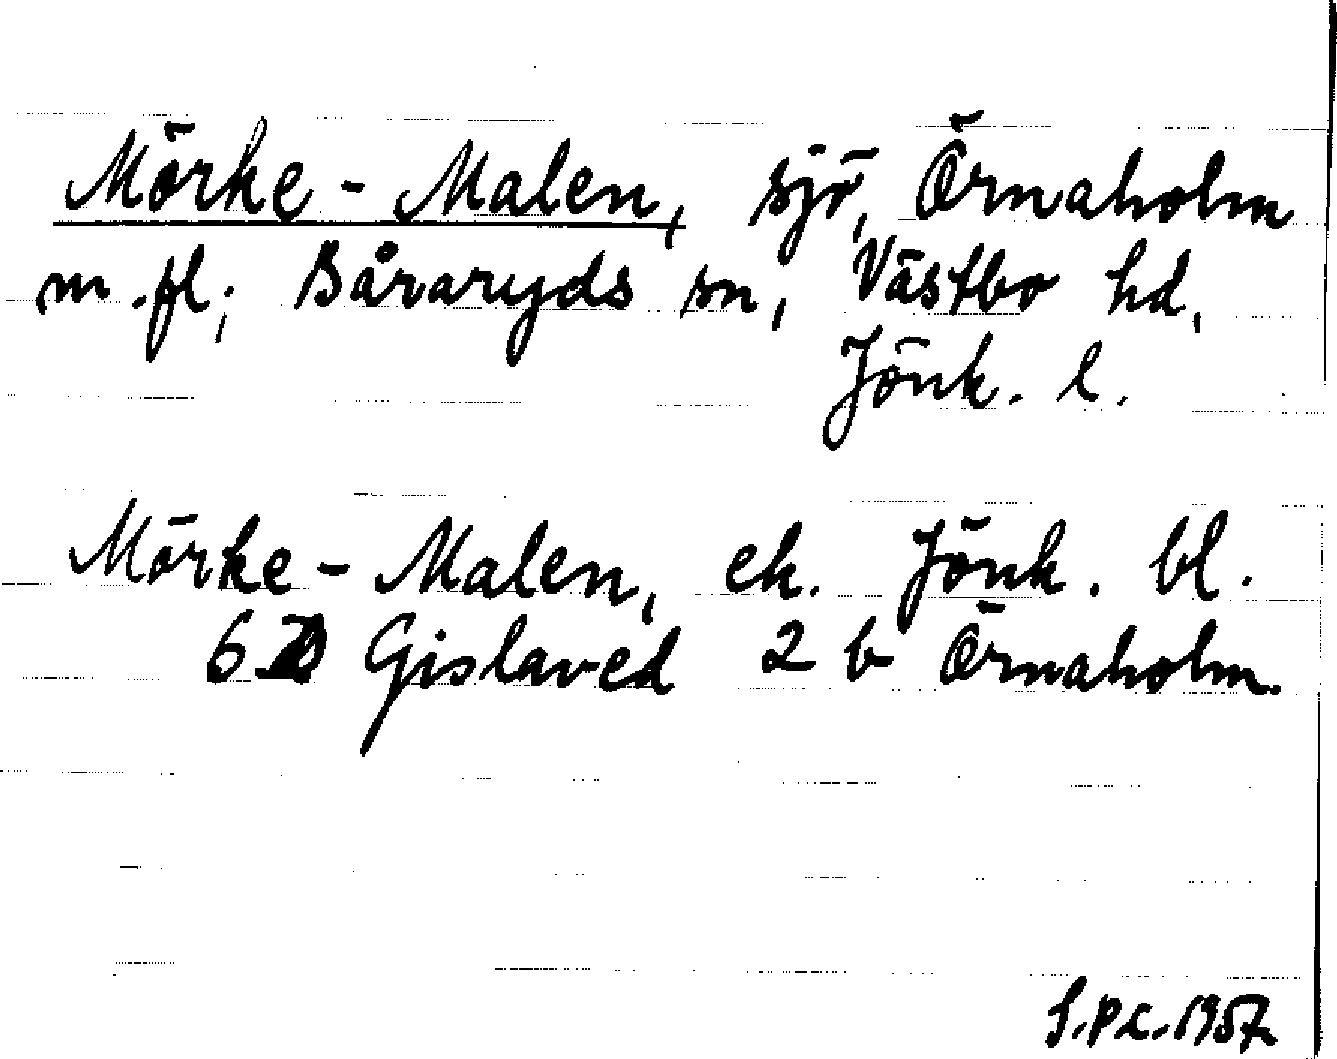 Mörke-Malen, sjö, Örnaholm
m.fl; Båraryds sn, Västbo hd,
Jönk. l.
Mörke-Malen, ek. Jönk. bl.
6 Gislaved 2 b Örnaholm.
1957